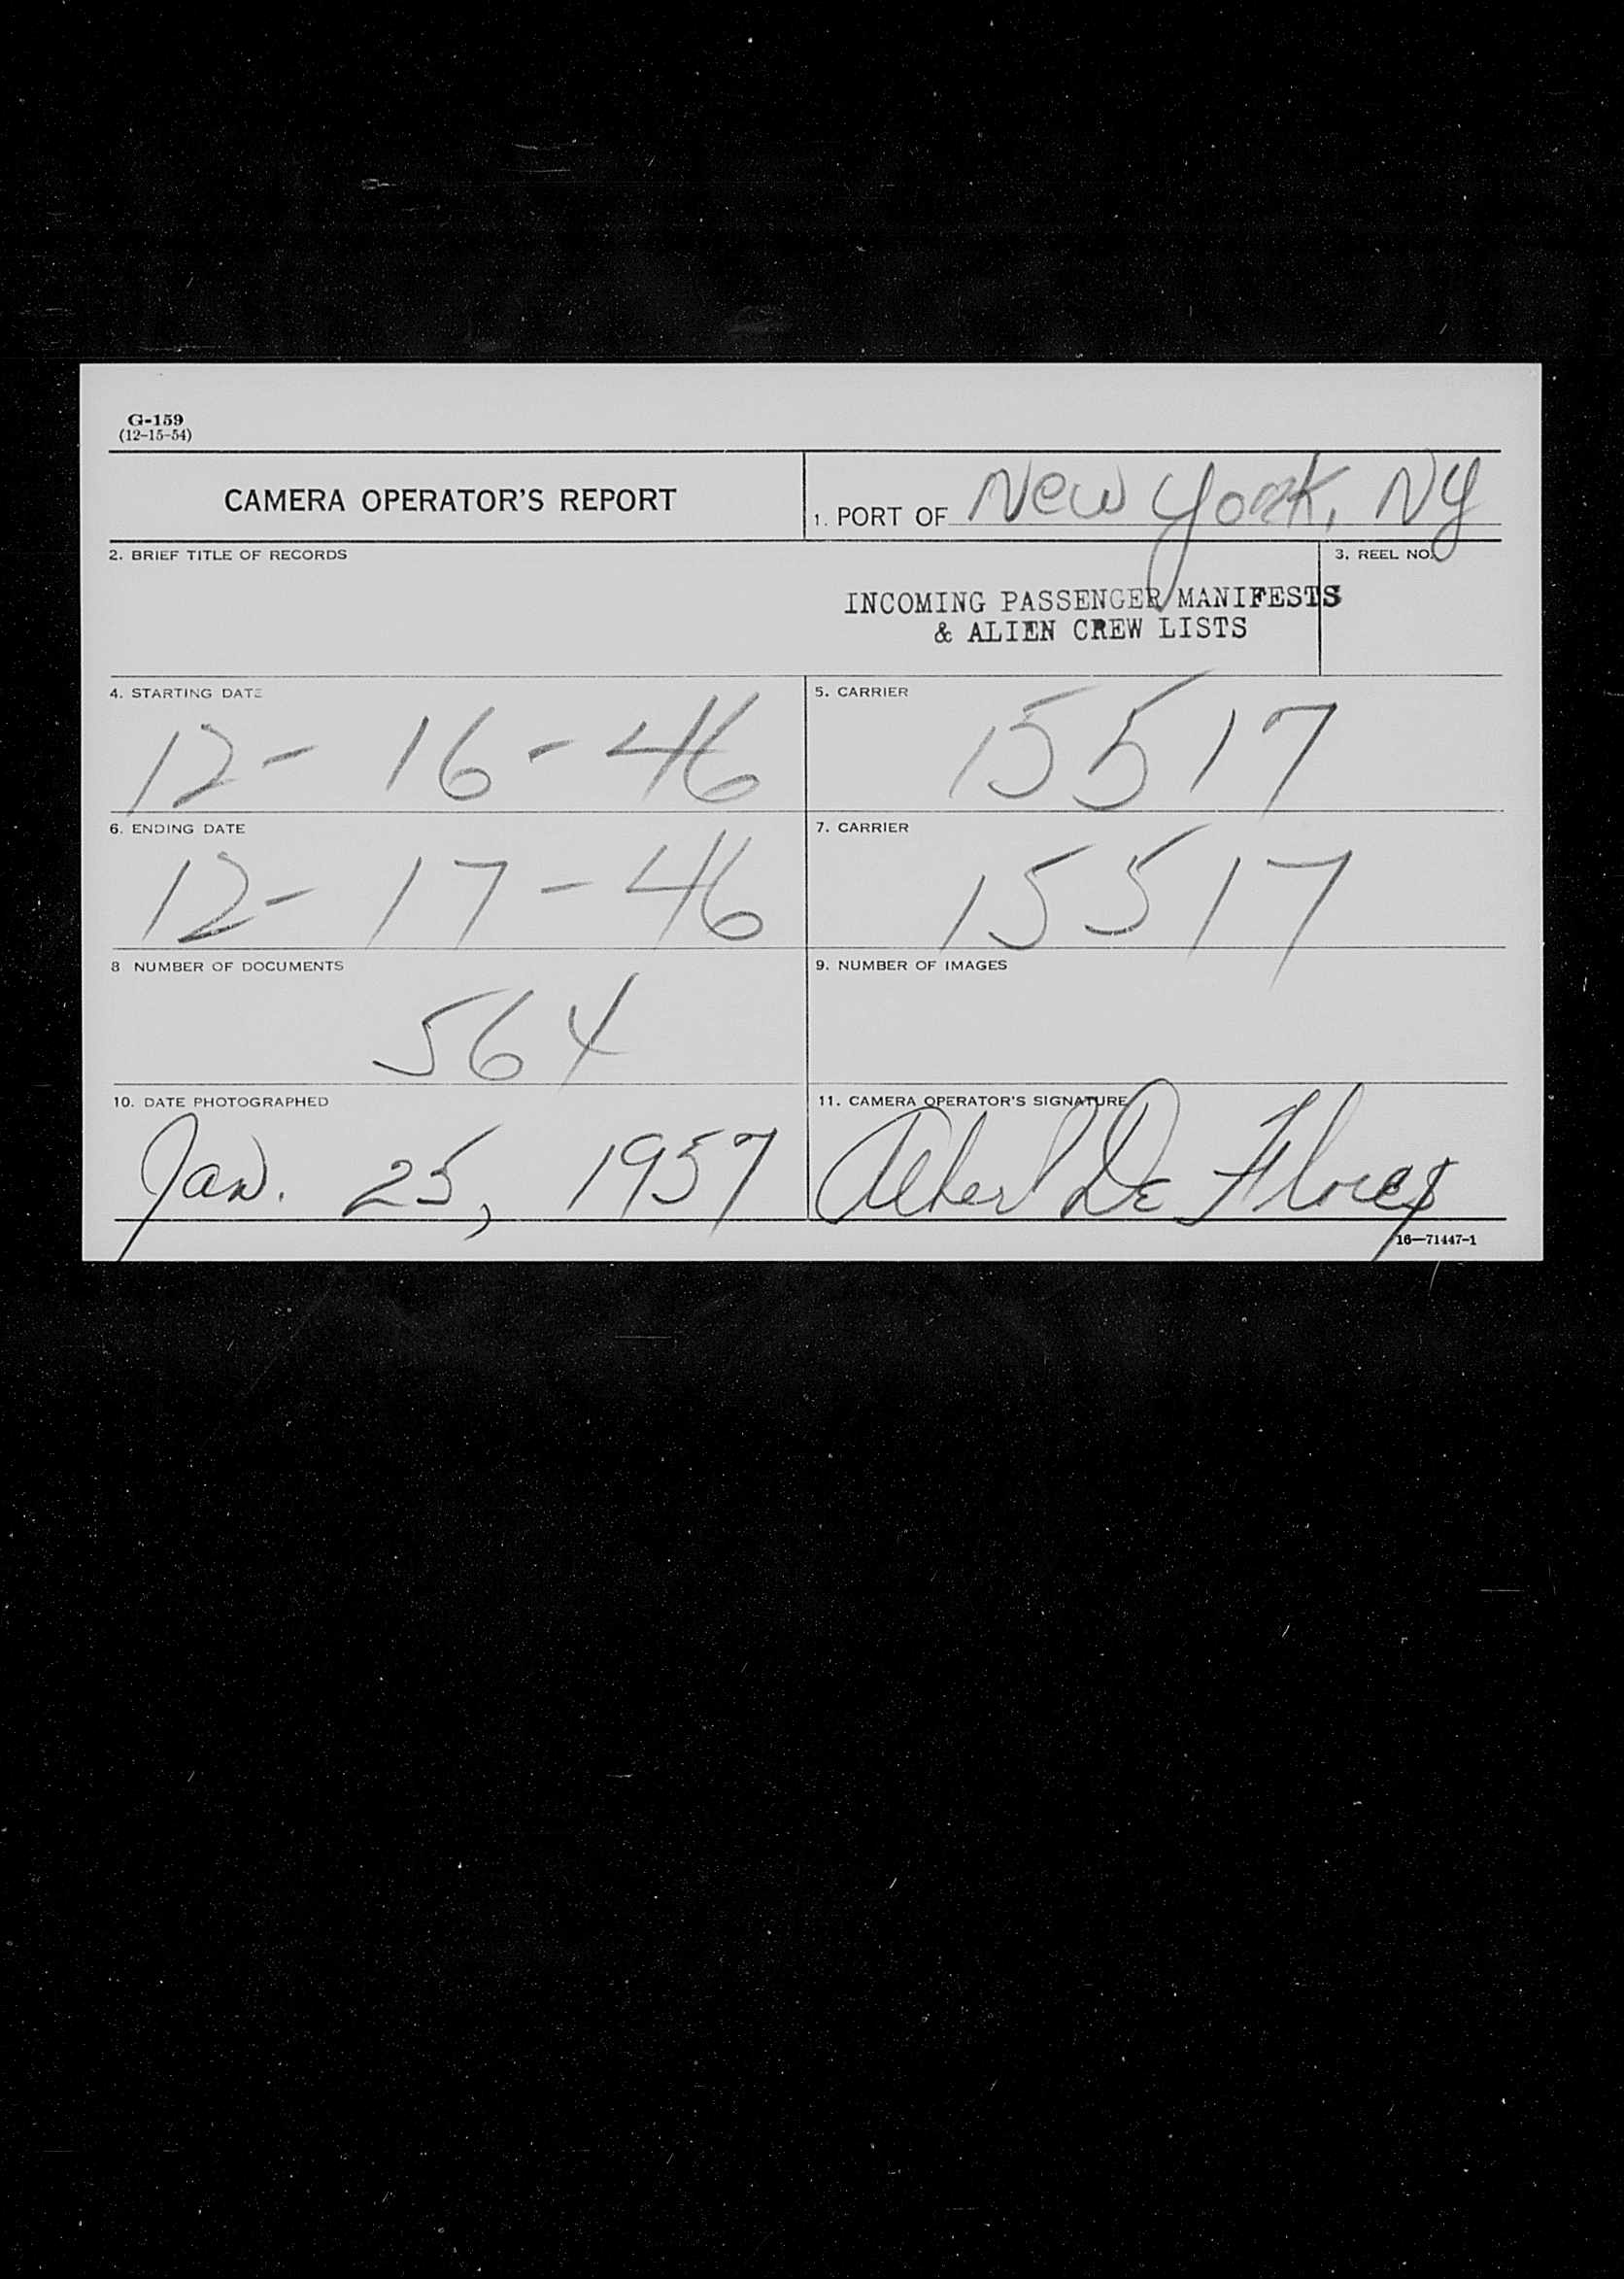 G-159
(12-15-54)
CAMERA OPERATOR'S REPORT
1. PORT OF New York, NY
2. BRIEF TITLE OF RECORDS
3. REEL NO.
INCOMING PASSENGER MANIFESTS
& ALIEN CREW LISTS
4. STARTING DATE
12-16-46
5. CARRIER
15517
6. ENDING DATE
12-17-46
7. CARRIER
15517
8 NUMBER OF DOCUMENTS
564
9. NUMBER OF IMAGES
10. DATE PHOTOGRAPHED
Jan. 25, 1957
11. CAMERA OPERATOR'S SIGNATURE
De Flores
16—71447-1